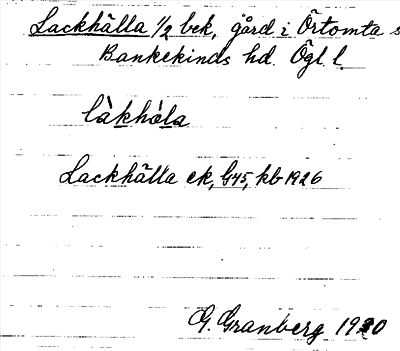 Lackhälla 1/2 bek, gård i Örtomta s
Bankekinds hd. Ögl l.
làkhála
Lackhälla ek, G45, kb 1926
G. Granberg 1930